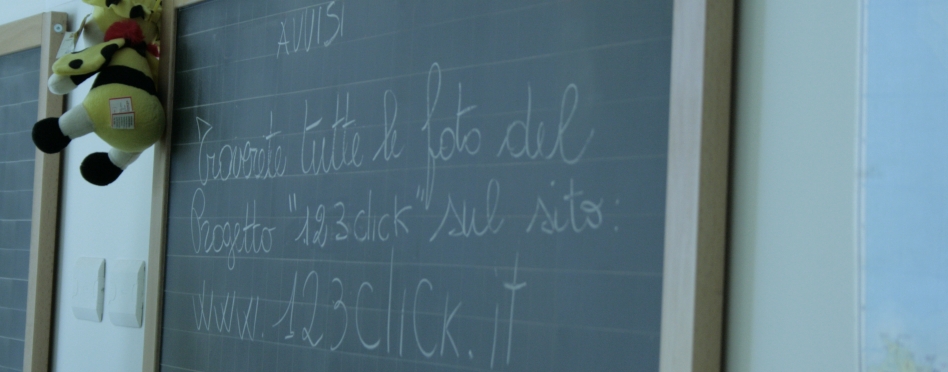 AVVISI
Troverete tutte le foto del
Progetto "123click" sul sito:
www.123ClICk.it